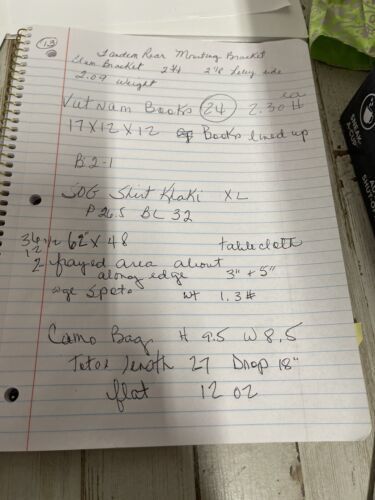 13
Tandem Rear Mounting Bracket
Bracket 2 3/4 side
2.09 weight
ea
Viet Nam Books 24 2.30 #
17 X 12 X 12 Books lined up
B 2-1
SOG Shirt Khaki XL
P 26.5 BL 32
62" X 48 tablecloth
frayed area about
along edge 3" + 5"
age spots wt 1.3 #
Camo Bag H 9.5 W 8.5
Total length 27 Drop 18"
flat 12 oz